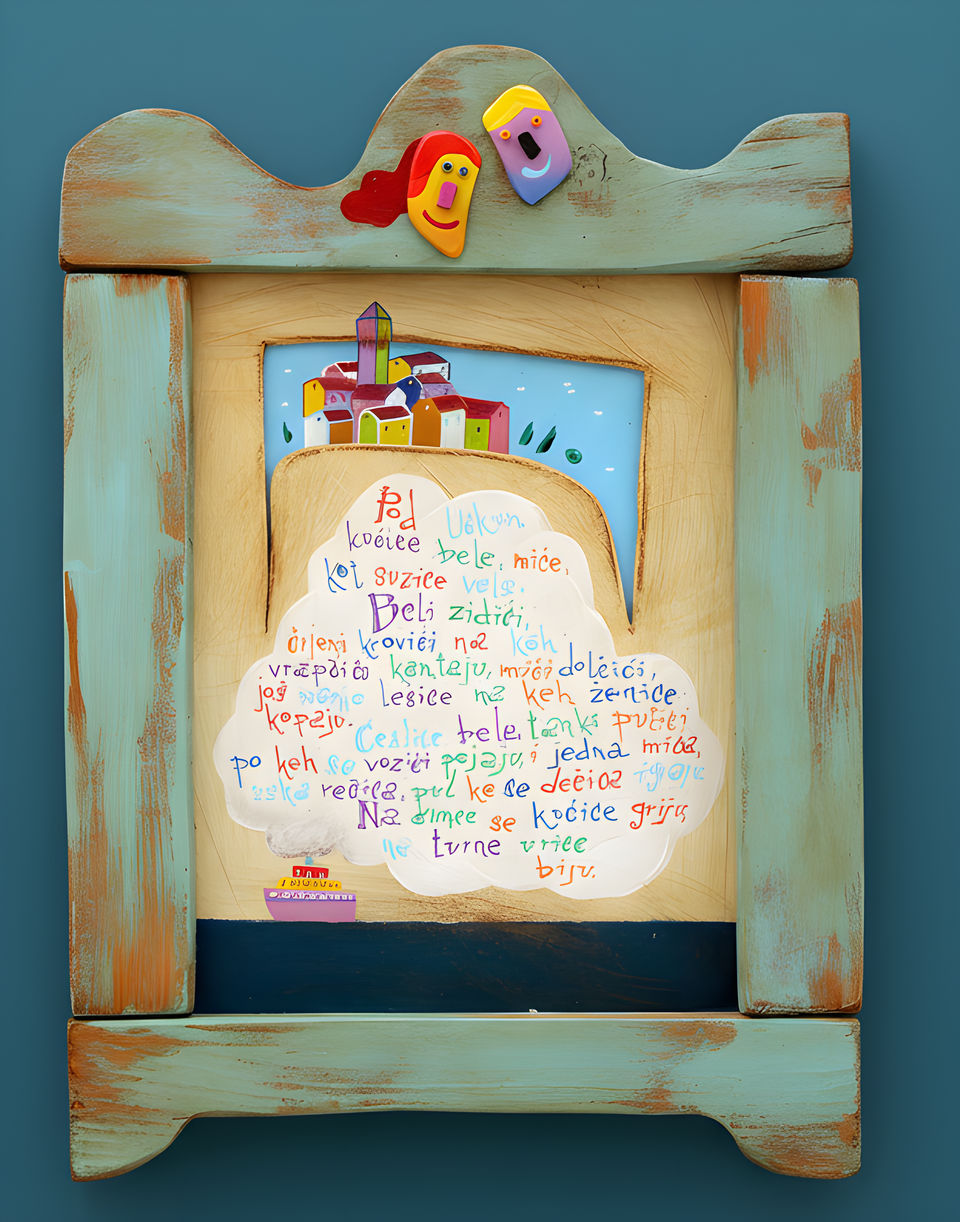 Pod Učkun.
kućice bele, miće,
kot suzice vele.
Beli zidići,
črjeni krovići, na keh
vrapčići kantaju, mići dolčići,
još manje lešice na keh ženice
kopaju. Cestice bele, tanki putići
po keh se vozići pejaju, i jedna mića,
uska rečica, pul ke se dečica igraju
Na se kućice griju,
na turne urice
biju.